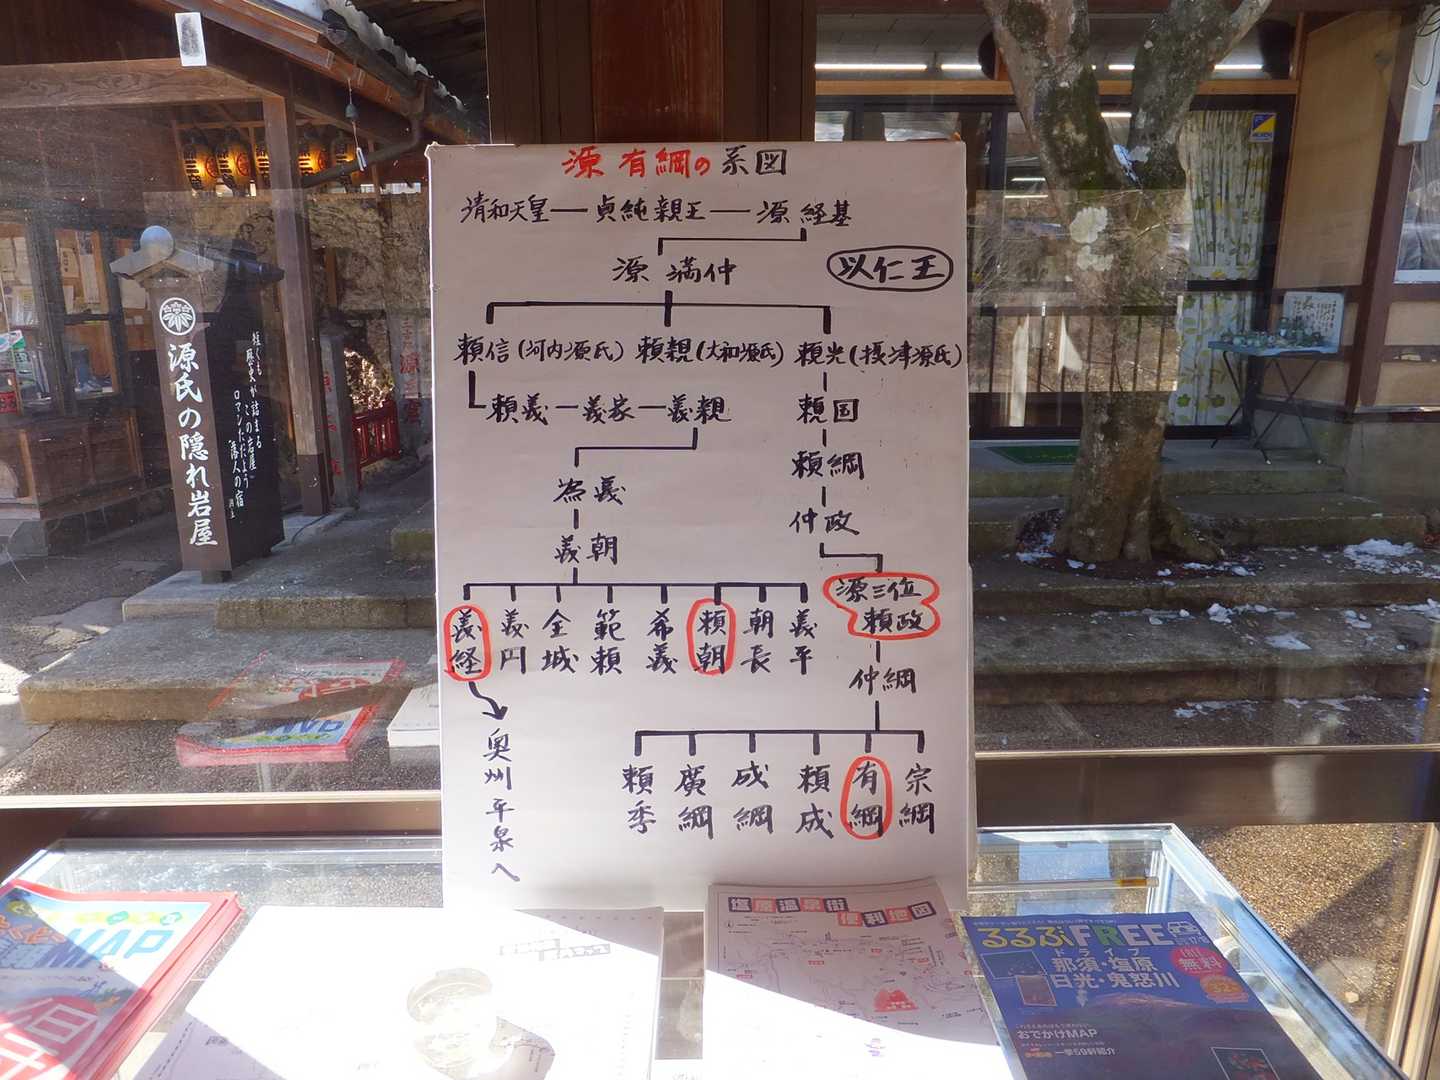 源 有綱の系図
清和天皇 ― 貞純親王 ― 源 経基
源 満仲
以仁王
頼信(河内源氏) 頼親(大和源氏) 頼光(摂津源氏)
頼義 ― 義家 ― 義親
頼国
頼綱
為義
仲政
義朝
源三位
頼政
義経
義円
全城
範頼
希義
頼朝
朝長
義平
仲綱
奥州平泉へ
頼季
廣綱
成綱
頼成
有綱
宗綱
源氏の隠れ岩屋
歴史が詰まる
この岩屋
ロマンただよう
落人の宿
MAP
塩原温泉街
便利地図
るるぶFREE
ドライブ
無料
那須・塩原
日光・鬼怒川
おでかけMAP
一挙59軒紹介